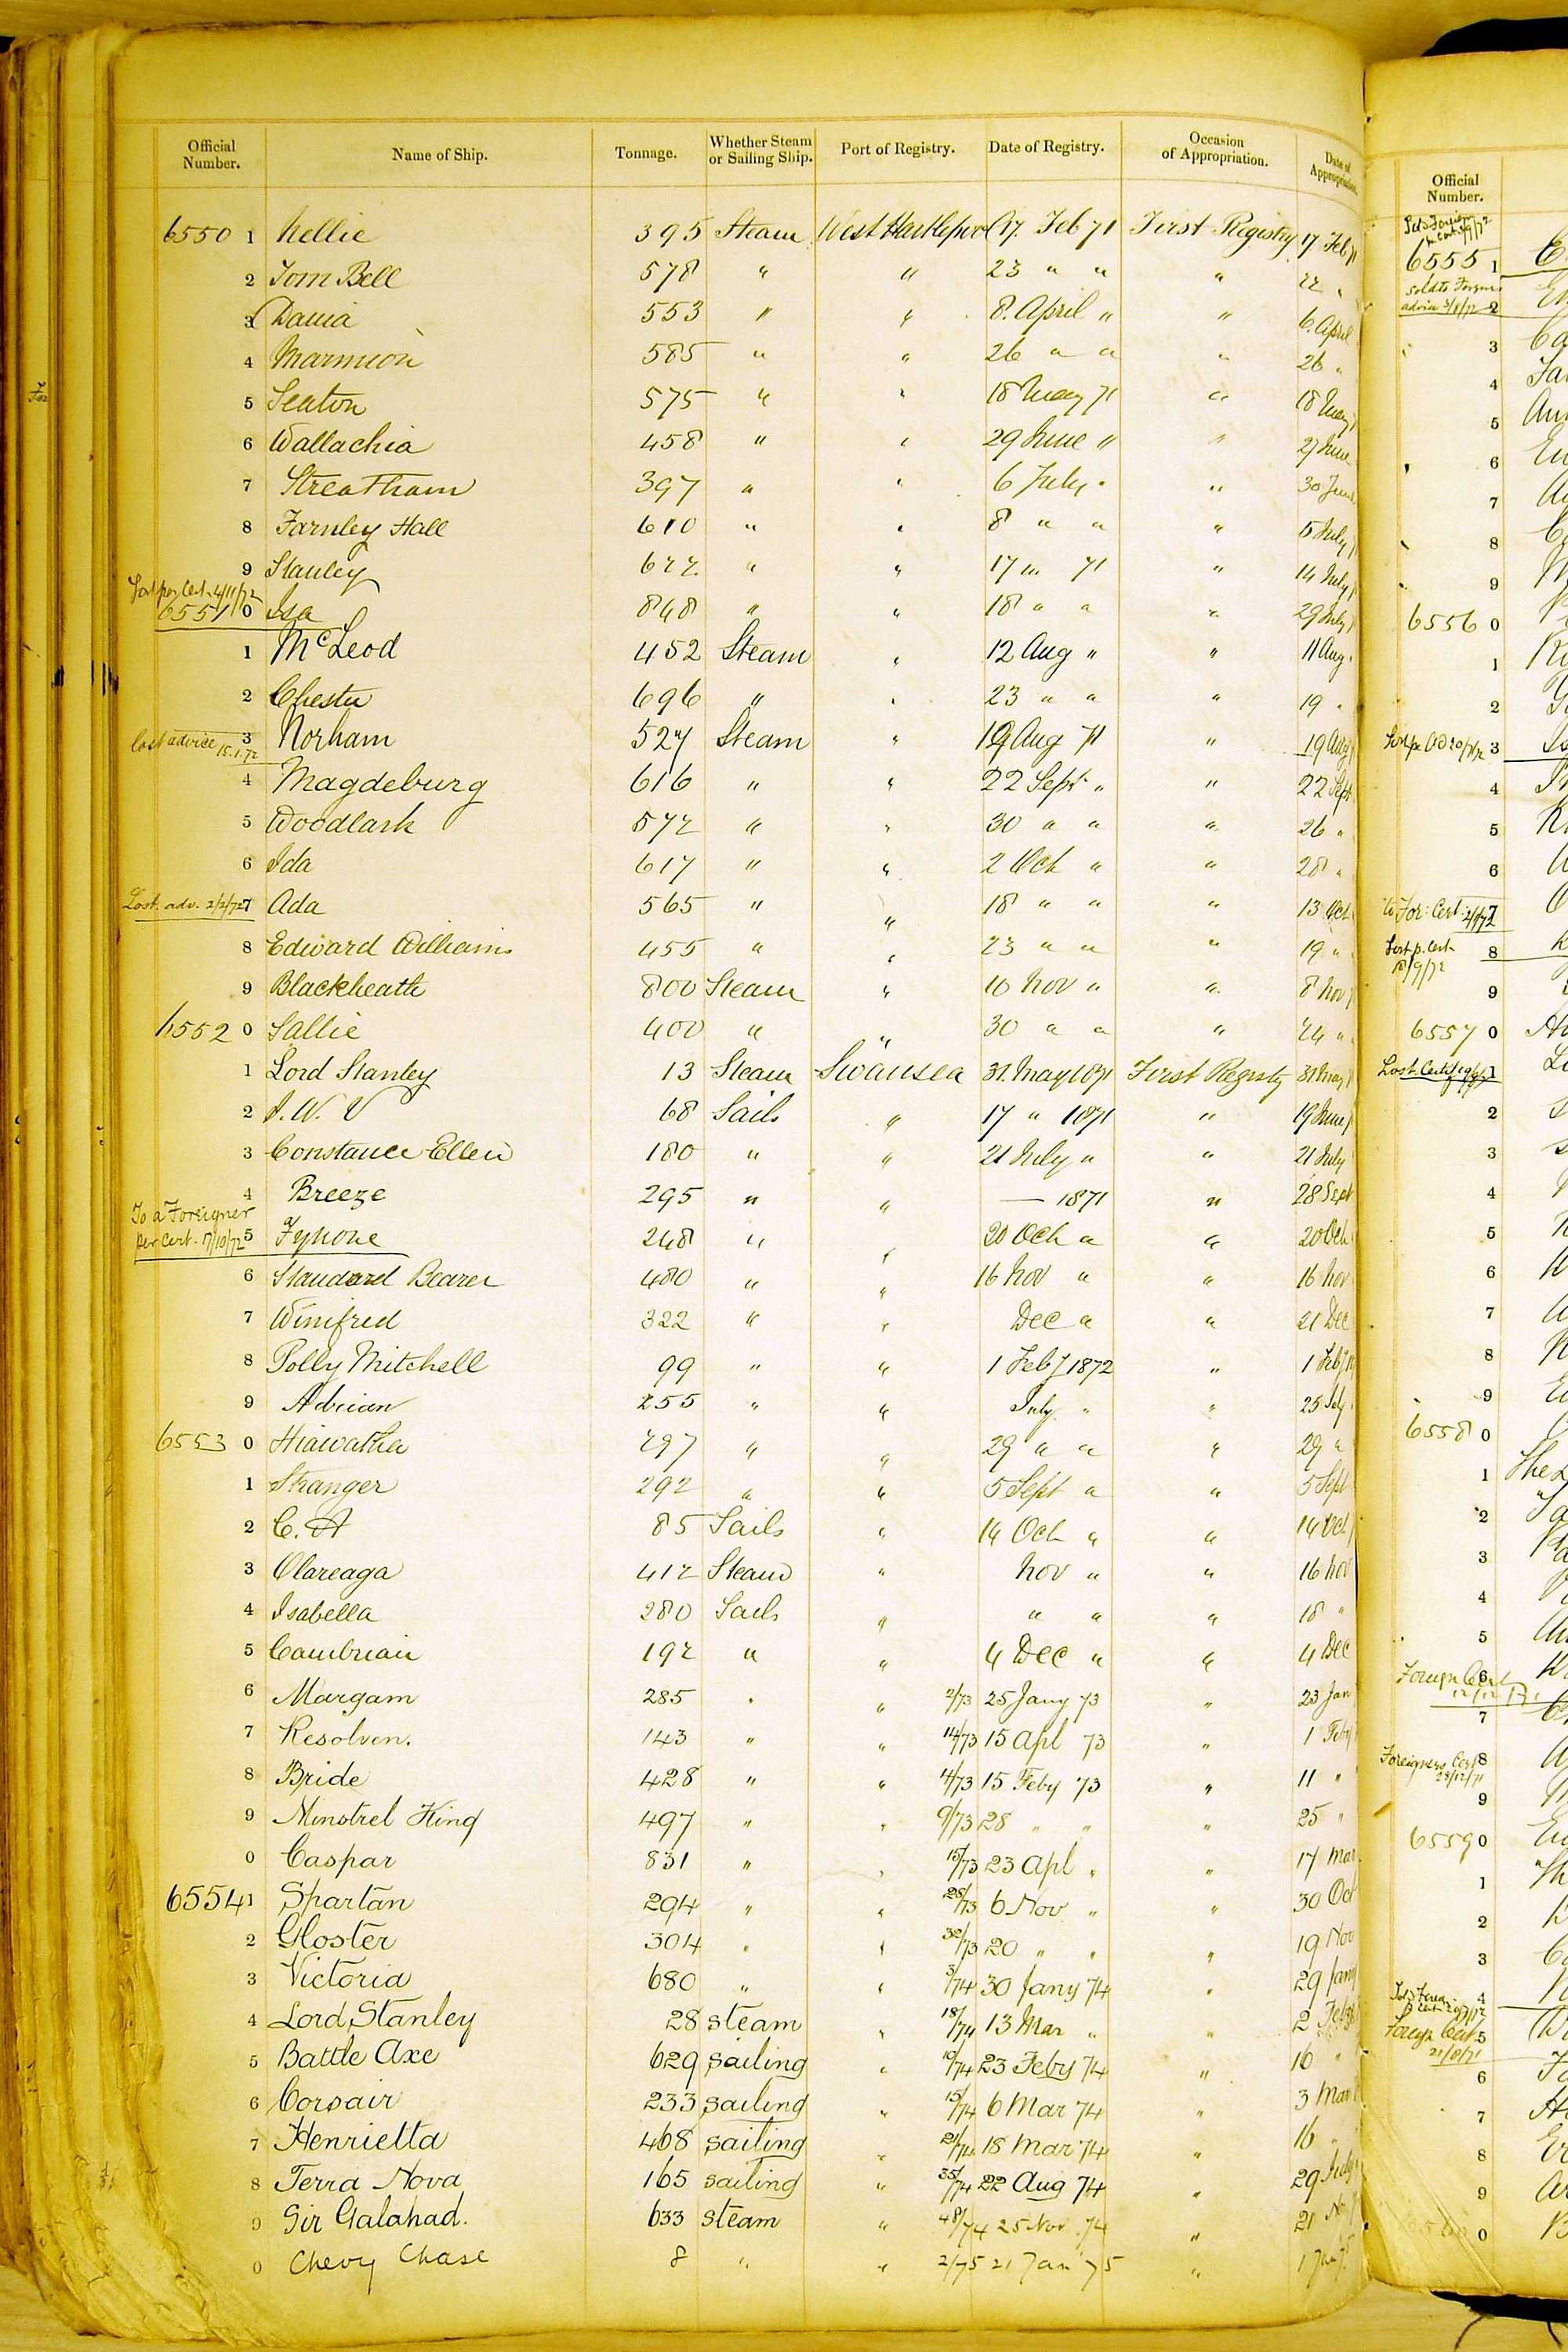 Official Number. Name of Ship. Tonnage. Whether Steam or Sailing Ship. Port of Registry. Date of Registry. Occasion of Appropriation. Date of Appropriation.
6550 1 Nellie 395 Steam West Hartlepool 17. Feb 71 First Registry 17 Feb
2 Tom Bell 578 " " 23 " " " 22 "
3 Dania 553 " " 8. April " " 6. April
4 Marmion 585 " " 26 " " " 26 "
5 Seaton 575 " " 18 May 71 " 18 May
6 Wallachia 458 " " 29 June " " 27 June
7 Streatham 397 " " 6 July " " 30 June
8 Farnley Hall 610 " " 8 " " " 5 July
9 Stanley 622 " " 17 " 71 " 14 July
Lost per Cert. 4/11/72
6551 0 Isa 848 " " 18 " " " 29 July
1 McLeod 452 Steam " 12 Aug " " 11 Aug.
2 Chester 696 " " 23 " " " 19 "
Lost advice 15.1.72 3 Norham 527 Steam " 19 Aug 71 " 19 Aug
4 Magdeburg 616 " " 22 Sept " " 22 Sept
5 Woodlark 572 " " 30 " " " 26 "
6 Ida 617 " " 2 Oct " " 28 "
Lost. adv. 2/2/72 7 Ada 565 " " 18 " " " 13 Oct
8 Edward Williams 455 " " 23 " " " 19 "
9 Blackheath 800 Steam " 10 Nov " " 8 Nov
6552 0 Sallie 400 " " 30 " " " 24 "
1 Lord Stanley 13 Steam Swansea 31. May 1871 First Registy 31 May
2 J. W. V 68 Sails " 17 " 1871 " 19 June
3 Constance Ellen 180 " " 21 July " " 21 July
4 Breeze 295 " " — 1871 " 28 Sept
To a Foreigner
per Cert. 7/10/72 5 248 " " 20 Oct " " 20 Oct
6 Standard Bearer 480 " " 16 Nov " " 16 Nov
7 Winifred 322 " " Dec " " 21 Dec
8 Polly Mitchell 99 " " 1 Feby 1872 " 1 Feby
9 Adrian 255 " " July " " 25 July
6553 0 Hiawatha 297 " " 29 " " " 29 "
1 Stranger 292 " " 5 Sept " " 5 Sept
2 C. A 85 Sails " 14 Oct " " 14 Oct
3 Olareaga 412 Steam " Nov " " 16 Nov
4 Isabella 280 Sails " " " " 18 "
5 Cambrian 192 " " 4 Dec " " 4 Dec
6 Margam 285 " " 2/73 25 Jany 73 " 23 Jan
7 Resolven. 143 " " 14/73 15 Apl 73 " 1 Feby
8 Bride 428 " " 4/73 15 Feby 73 " 11 "
9 Minstrel King 497 " " 9/73 28 " " " 25 "
0 Caspar 831 " " 15/73 23 Apl " " 17 Mar
6554 1 Spartan 294 " " 28/73 6 Nov " " 30 Oct
2 Gloster 304 " " 32/73 20 " " " 19 Nov
3 Victoria 680 " " 3/74 30 Jany 74 " 29 Jany
4 Lord Stanley 28 steam " 18/74 13 Mar " " 2 Feby
5 Battle Axe 629 sailing " 10/74 23 Feby 74 " 16 "
6 Corsair 233 sailing " 15/74 6 Mar 74 " 3 Mar
7 Henrietta 468 sailing " 21/74 18 Mar 74 " 16 "
8 Terra Nova 165 sailing " 35/74 22 Aug 74 " 29 July
9 Sir Galahad. 633 steam " 48/74 25 Nov. 74 " 21 Nov
0 Chevy Chase 8 " " 2/75 21 Jan 75 " 1 Jan
Official Number.
6555 1
Sold to
advice 3/8/72 2
3
4
5
6
7
8
9
6556 0
1
2
3
4
5
6
to For: Cert. 7
Lost p. Cert. 8
9
6557 0
Lost Certif 1
2
3
4
5
6
7
8
9
6558 0
1 The
2
3
4
5
Foreign Cert 6
7
Foreigners Cert 8
9
6559 0
1
2
3
4
Foreign Cert 5
6
7
8
9
0